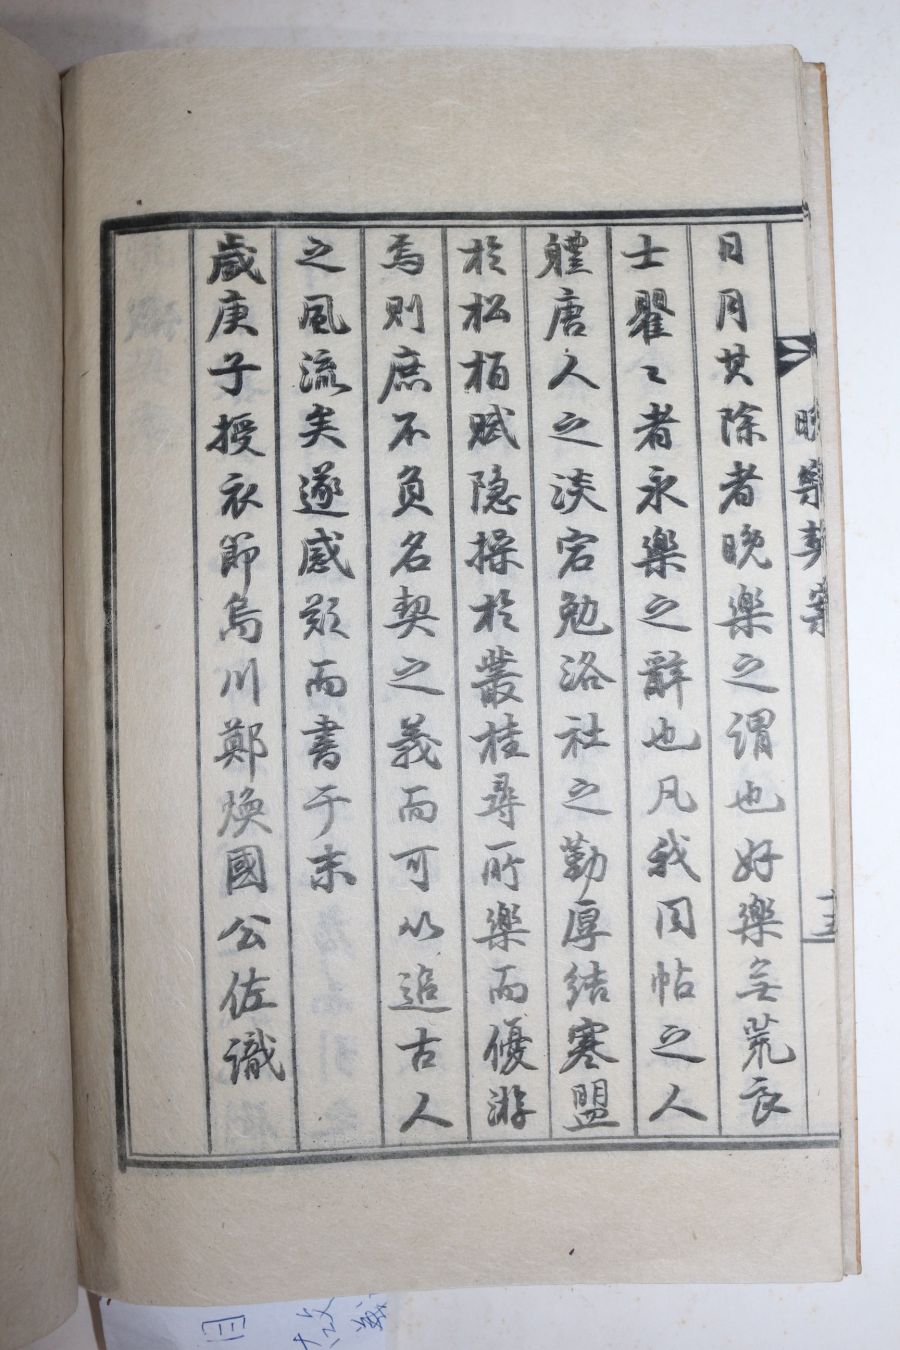 日月其除者晩樂之謂也好樂無荒良
士瞿〻者永樂之辭也凡我同帖之人
軆唐人之淡宕勉洛社之勤厚結寒盟
於松栢賦隐操於叢桂尋所樂而優游
焉則庶不負名契之義而可以追古人
之風流矣遂感歎而書于末
歲庚子授衣節烏川鄭煥國公佐識
十三